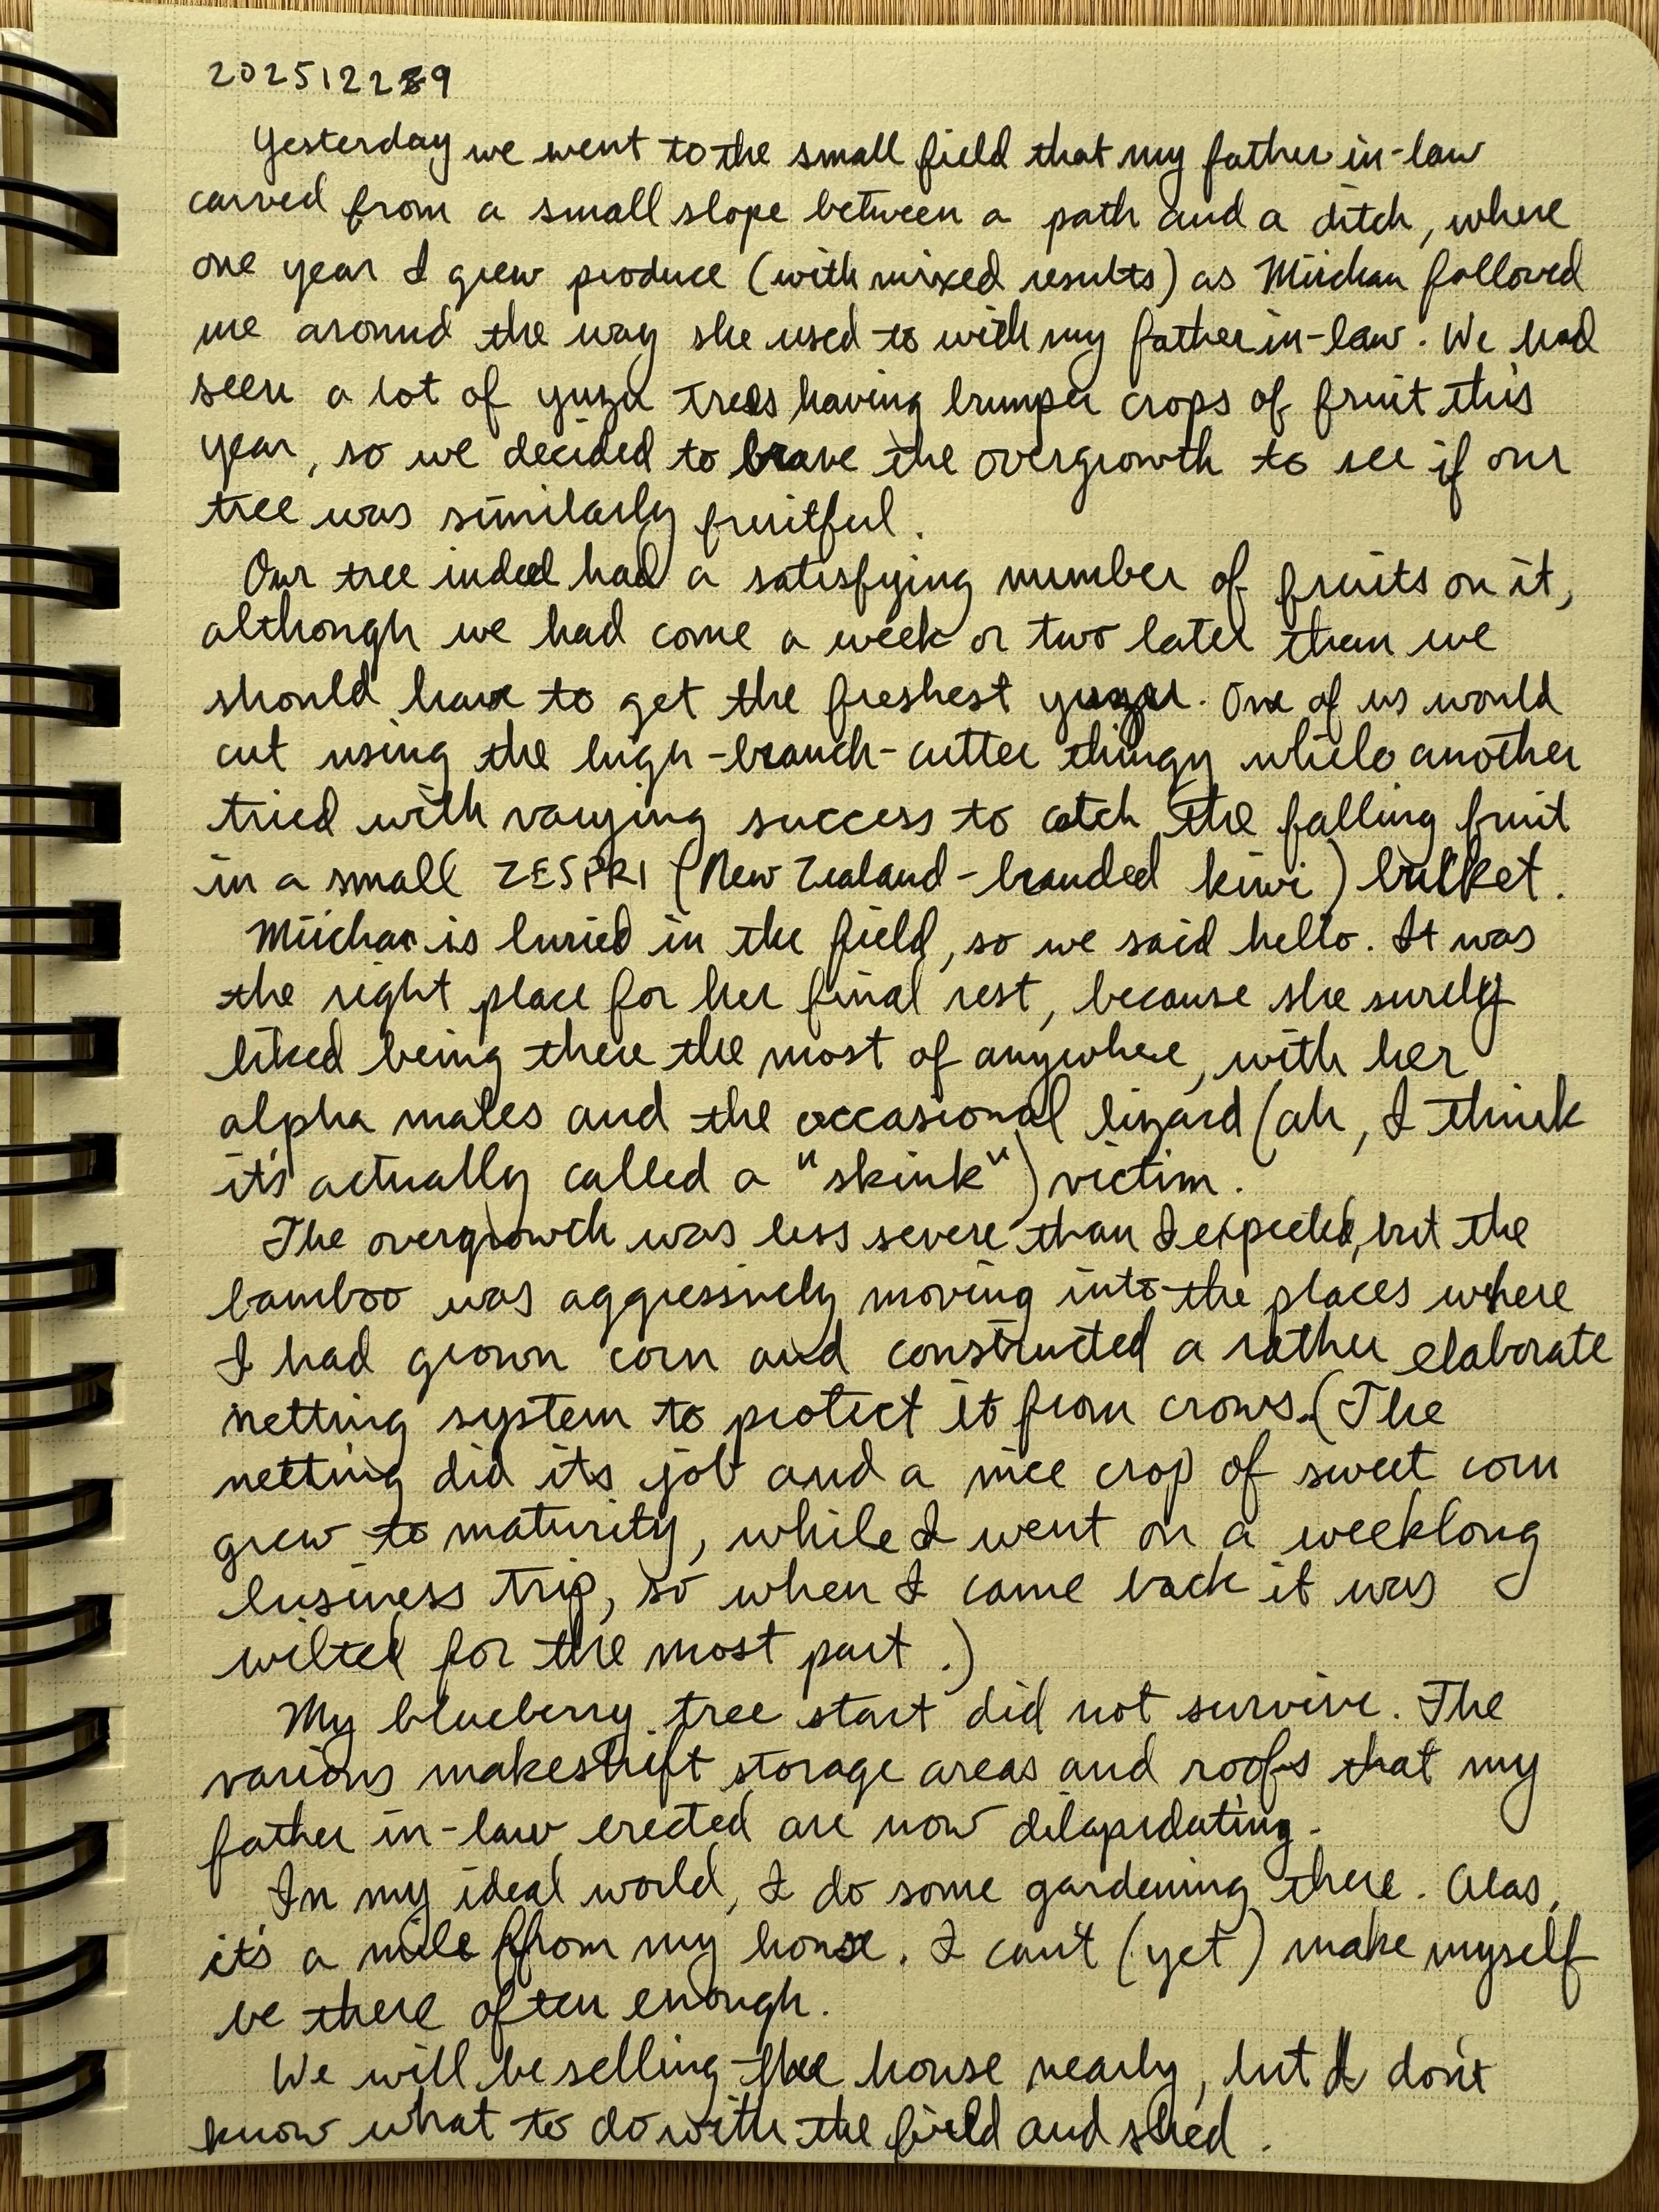 20251229
Yesterday we went to the small field that my father in-law
carved from a small slope between a path and a ditch, where
one year I grew produce (with mixed results) as Miichan followed
me around the way she used to with my father in-law. We had
seen a lot of yuzu trees having bumper crops of fruit this
year, so we decided to brave the overgrowth to see if our
tree was similarly fruitful.
Our tree indeed had a satisfying number of fruits on it,
although we had come a week or two later than we
should have to get the freshest yuzu. One of us would
cut using the high-branch-cutter thingy while another
tried with varying success to catch the falling fruit
in a small ZESPRI (New Zealand-branded kiwi) bucket.
Miichan is buried in the field, so we said hello. It was
the right place for her final rest, because she surely
liked being there the most of anywhere, with her
alpha males and the occasional lizard (ah, I think
it's actually called a "skink") victim.
The overgrowth was less severe than I expected, but the
bamboo was aggressively moving into the places where
I had grown corn and constructed a rather elaborate
netting system to protect it from crows. (The
netting did its job and a nice crop of sweet corn
grew to maturity, while I went on a weeklong
business trip, so when I came back it was
wilted for the most part.)
My blueberry tree start did not survive. The
various makeshift storage areas and roofs that my
father in-law erected are now dilapidating.
In my ideal world, I do some gardening there. Alas,
it's a mile from my house. I can't (yet) make myself
be there often enough.
We will be selling the house nearby, but I don't
know what to do with the field and shed.